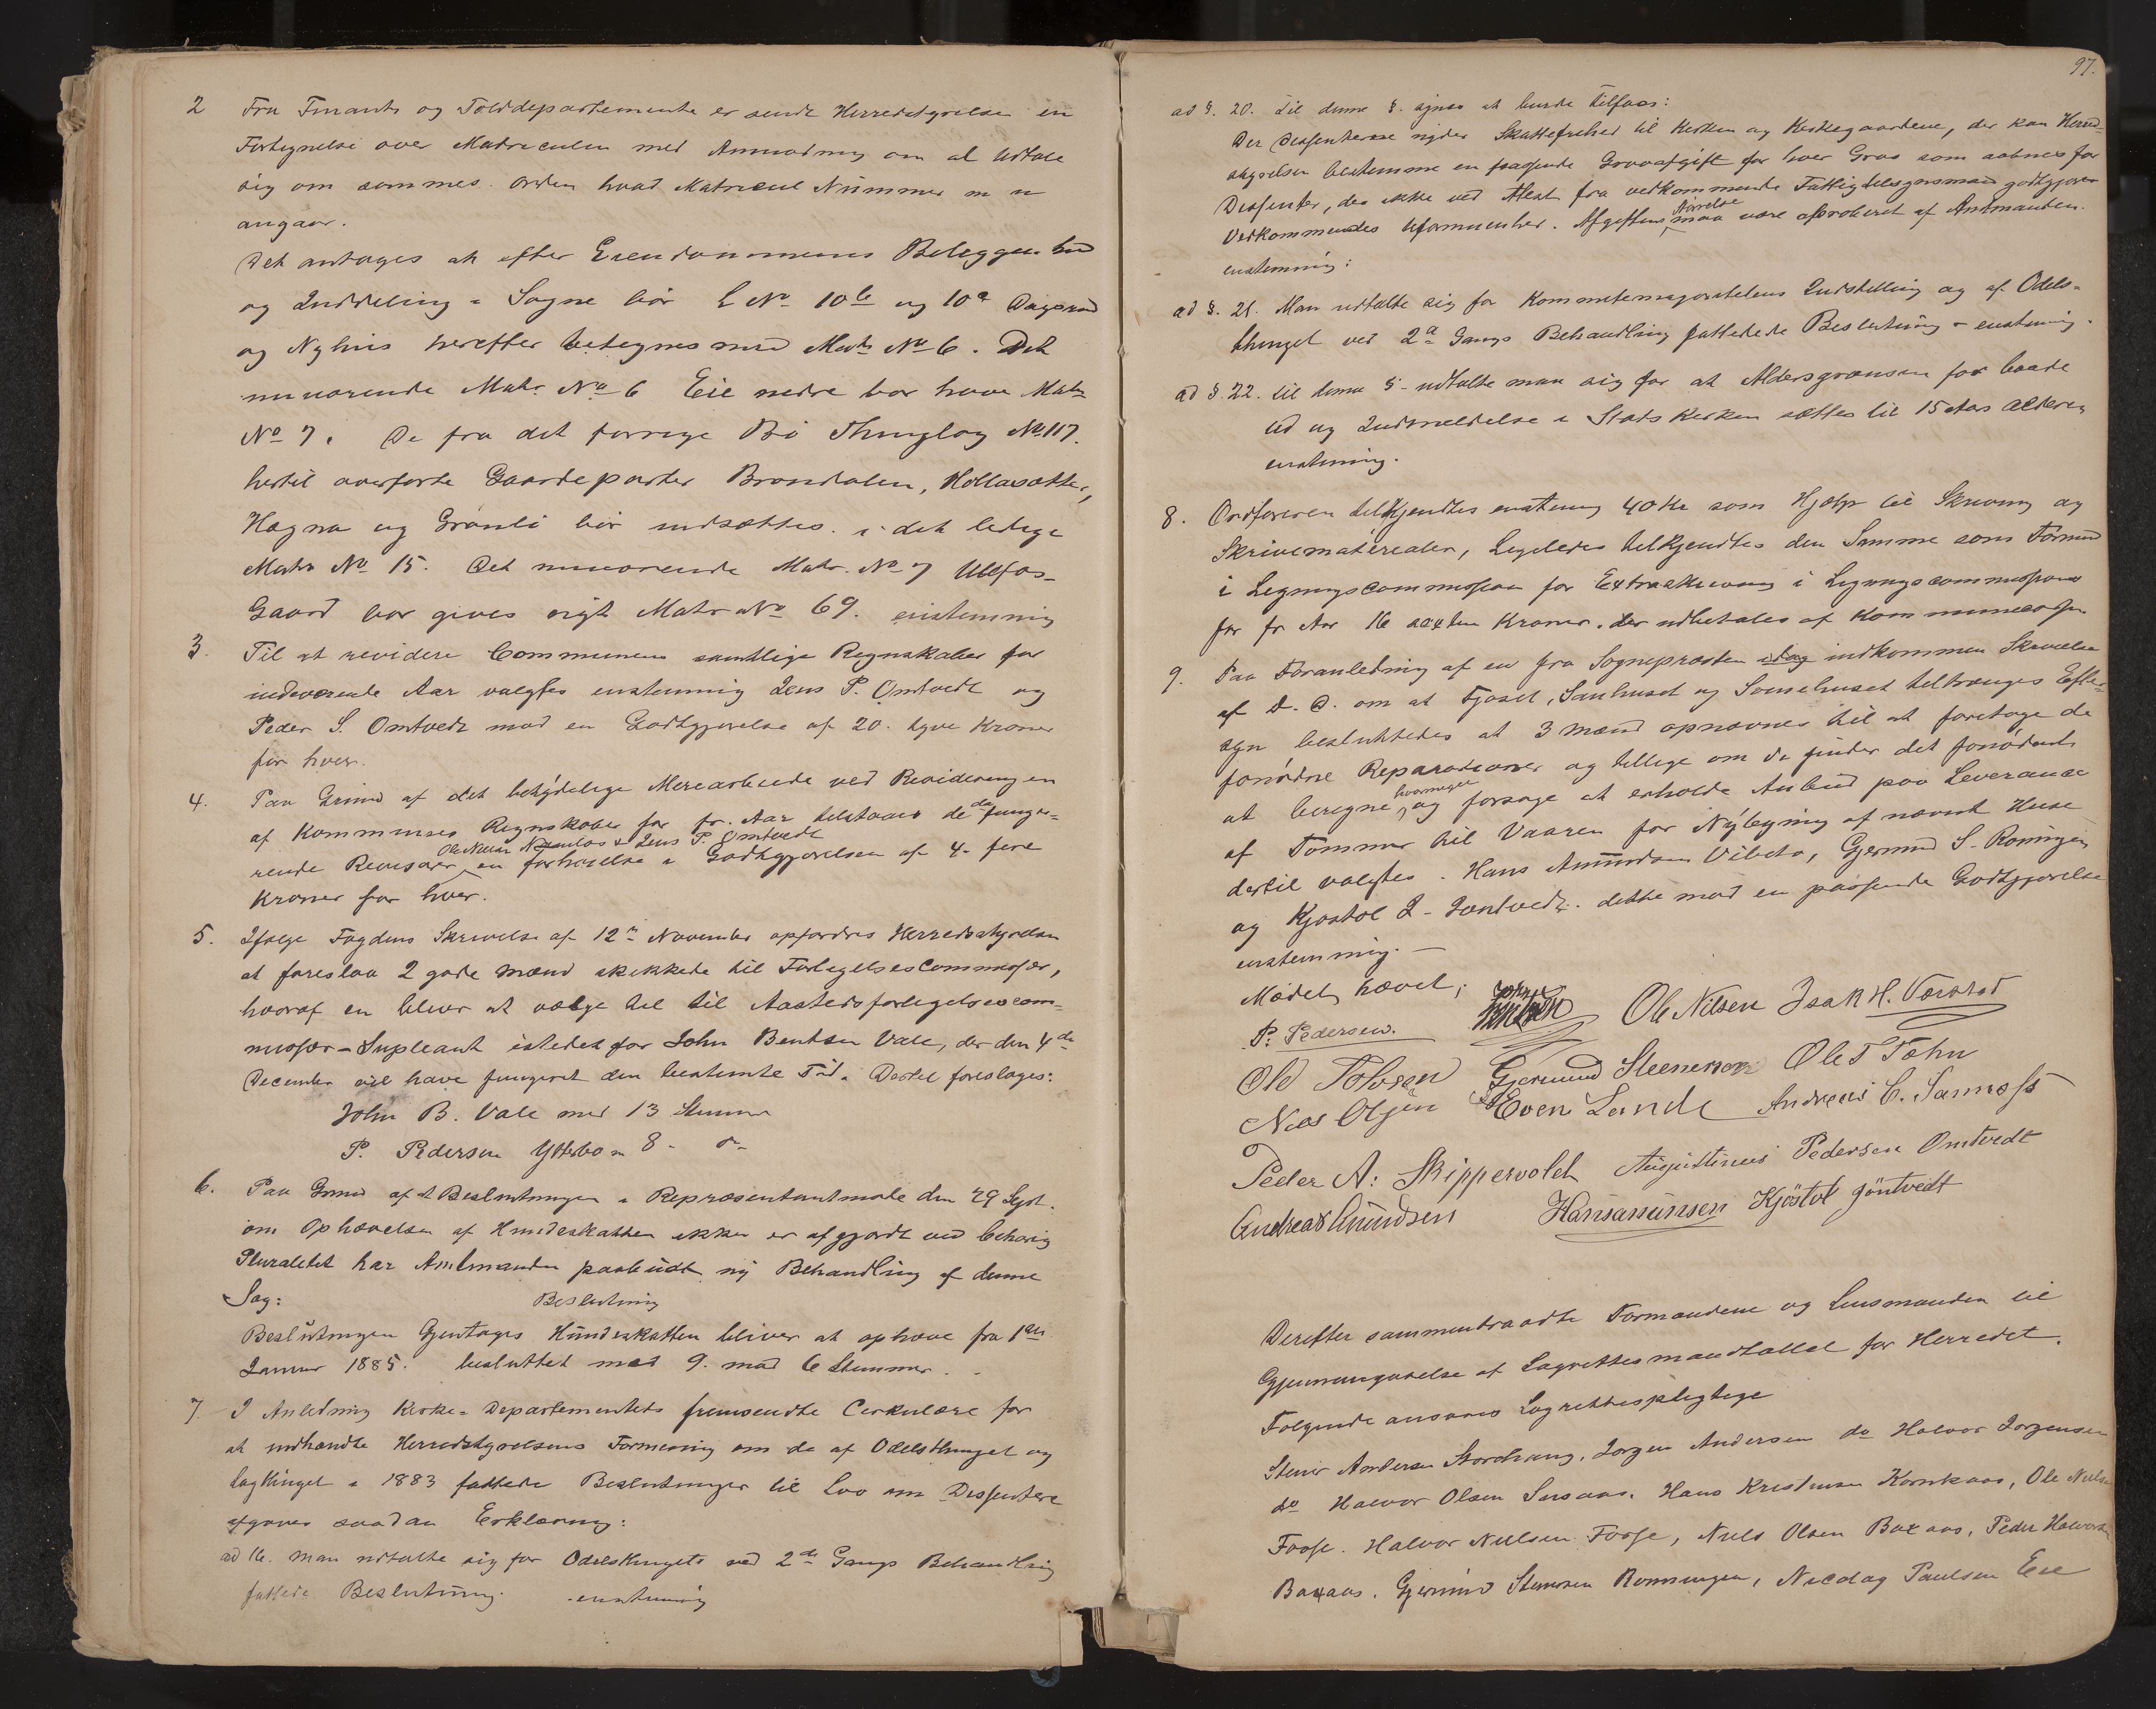 2 Fra Finants og Tolddepartementet er sendt Herredstyrelsen en
Fortegnelse over Matriculen med Anmodning om at udtale
sig om sammes Orden hvad Matricul Nummer m n
angaar.
Det antages at efter Eiendommens Beliggenhed
og Inddeling i Sogne bör L No 10b og 10a Dagsrud
og Nyhus herefter betegnes med Matr No 6. Det
nuværende Matr. No 6 Eie nedre bør have Matr
No 7. De fra det forrige Bö Thinglag No 117.
hertil overførte Gaardeparter Brondalen, Hollasætter,
Hægna og Grönli bör indsættes i det ledige
Matr No 15. Det nuværende Matr. No 7 Ulefos-
Gaard bør gives nyt Matr No 69. enstemmig
3. Til at revidere Communens samtlige Regnskaber for
indeværende Aar valgtes enstemmig Jens P. Omtvedt og
Peder S. Omtvedt mod en Godtgjørelse af 20. tyve Kroner
for hver.
4. Paa Grund af det betydelige Merearbeide ved Revideringen
af Kommunens Regnskaber for fr. Aar tilstaaes de da funge-
rende Revisorer Ole Nielsen & Jens P. Omtvedt en forhøielse i Godtgjørelsen af 4. fire
Kroner for hver.
5. Ifølge Fogdens Skrivelse af 12te November opfordres Herredsstyrelsen
at foreslaa 2 gode Mænd skikkede til Forligelsescommissær,
hvoraf en bliver at vælge til til Aastedsforligelsescom-
missær-Supleant istedet for John Bentsen Vale, der den 4de
December vil have fungeret den bestemte Tid. Dertil foreslages:
John B. Vale med 13 Stemmer
P. Pedersen Ytterbø m 8 - do -
6. Paa Grund af at Beslutningen i Repræsentantmøde den 29 Sept.
om Ophævelsen af Hundeskatten ikke er afgjordt ved behørig
Pluralitet har Amtmanden paabudt ny Behandling af denne
Sag:
Beslutning
Beslutningen Gjentages Hundeskatten bliver at ophæve fra 1ste
Januar 1885. besluttet med 9. mod 6 Stemmer.
7. I Anledning Kirke-Departementets fremsendte Cirkulære for
at indhændte Herredstyrelsens Formening om de af Odelsthinget og
Lagthinget i 1883 fattede Beslutninger til Lov om Dissentere
afgaves saadan Erklæring:
ad 16. Man udtalte sig for Odelsthingets ved 2den Gangs Behandling
fattede Beslutning. enstemmig
97.
ad §. 20. Til denne §. synes at burde tilføies:
Der Dissenterne nyder Skattefrihed til Kirken og Kirkegaardene, der kan Herred-
styrelsen bestemme en passende Gravafgift for hver Grav som aabnes for
Dissenter, der ikke ved Attest fra vedkommende Fattigtilsynsmand godtgjører
Vedkommendes Uformuenhed. Afgiftens Størrelse maa være aproberet af Amtmanden.
enstemmig:
ad §. 21. Man udtalte sig for Kommitemajoritetens Indstilling og af Odels-
thinget ved 2den Gangs Behandling fattedede Beslutning - enstemmig.
ad §. 22. til denne § - udtalte man sig for at Aldersgrænsen for baade
Ud og Indmeldelse i Statskirken sættes til 15 Aars Alderen
enstemmig.
8. Ordføreren tilkjendtes enstemmig 40 Kr som Hjælp til Skrivning og
Skrivematerialer, Ligeledes tilkjendtes den Samme som Formand
i Ligningscommissionen for Extraskrivning i Ligningscommissionen
for fr Aar 16 sexten Kroner. der udbetales af Kommunecassen
9. Paa Foranledning af en fra Sognepræsten idag indkommen Skrivelse
af D. D. om at Fjøset, Sauhuset og Svinehuset tiltrænges Efter-
syn besluttedes at 3 Mænd opnævnes til at foretage de
fornødne Reparationer og tillige om de finder det fornødent
at beregne hvormeget og forsøge at erholde Anbud paa Leverance
af Tømmer til Vaaren for Nybygning af nævnt Huse
dertil valgtes. Hans Amundsen Vibeto, Gjermund S. Roningen
og Kjøstol J. Jøntvedt. dette mod en passende Godtgjørelse
enstemmig. -
Mødet hævet;
P. Pedersen. Ole Nilsen Isak H. Værstad
Ole Tolvsen Gjermund Steenersen Ole T Tæhn
Niels Olsen Even Lande Andreas C. Sannæss
Peder A: Skippervold Augustinus Pedersen Omtvedt
Andreas Amundsen Hans Amunsen Kjöstol Jöntvedt
Derefter sammentraadte Formændene og Lensmanden til
Gjennemgaaelse af Lagrettesmandtallet for Herredet.
Følgende ansaaes Lagrettespligtige
Stener Andersen Stordrang, Jørgen Andersen do Halvor Jørgensen
do Halvor Olsen Sisaas. Hans Kristensen Kornkaas, Ole Nielsen
Fosse. Halvor Nielsen Fosse, Niels Olsen Baxaas, Peder Halvorsen
Baxaas. Gjermund Stenersen Ronningen, Nicolay Paulsen Eie